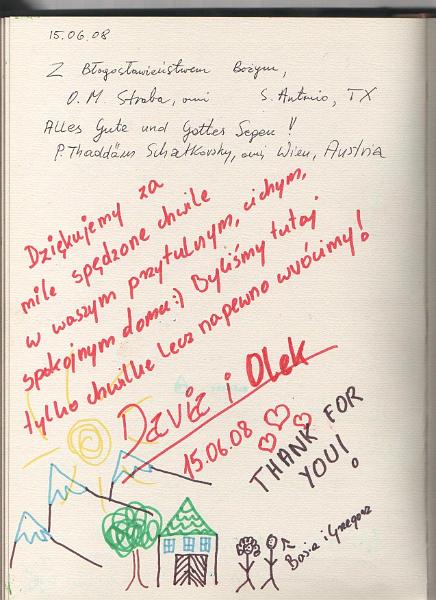 15.06.08
Z Błogosławieństwem Bożym,
O. M. Straba, omi S. Antonio, TX
Alles Gute und Gottes Segen!
P. Thaddäus Schatkovsky, omi, Wien, Austria
Dziękujemy za
miłe spędzone chwile
w waszym przytulnym, cichym,
spokojnym domu:) Byliśmy tutaj
tylko chwilkę lecz napewno wrócimy!
i Olek
15.06.08
THANK FOR
YOU!
Basia i Grzegorz